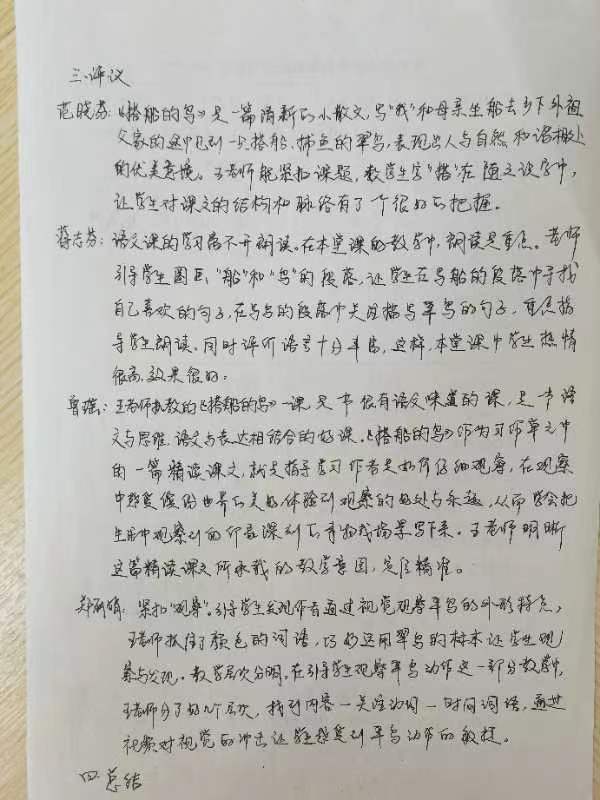 三.评议
范晓芬:《搭船的鸟》是一篇清新的小散文,写“我”和母亲坐船去乡下外祖
父家的途中见到一只搭船、捕鱼的翠鸟,表现出人与自然和谐相处
的优美意境。王老师能紧扣课题,教学生字“搭”在随文识字中,
让学生对课文的结构和脉络有了个很好的把握。
蒋志芬:语文课的学习离不开朗读。在本堂课的教学中,朗读是重点。老师
引导学生圈画“船”和“鸟”的段落,让学生在写船的段落中寻找
自己喜欢的句子,在写鸟的段落中关注描写翠鸟的句子,重点指
导学生朗读。同时评价语言十分丰富,这样,本堂课中学生热情
很高,效果很好。
鲁瑶:王老师执教的《搭船的鸟》一课是一节很有语文味道的课,是一节语
文与思维、语文与表达相结合的好课。《搭船的鸟》作为习作单元中
的一篇精读课文,就是指导学习作者是如何仔细观察,在观察
中感受身边世界的美好,体验到观察的好处与乐趣,从而学会把
生活中观察到的印象深刻的事物或场景写下来。王老师明晰
这篇精读课文所承载的教学意图,定位精准。
郑丽娟:紧扣“观察”。引导学生发现作者通过视觉观察翠鸟的外形特点,
王老师抓住了颜色的词语,巧妙运用翠鸟的样来让学生观
察与发现。教学层次分明,在引导学生观察翠鸟动作这一部分教学中,
王老师分了好几个层次,找到内容—关注动词—时间词语,通过
视频对视觉的冲击让学生感受到翠鸟动作的敏捷。
四 总结